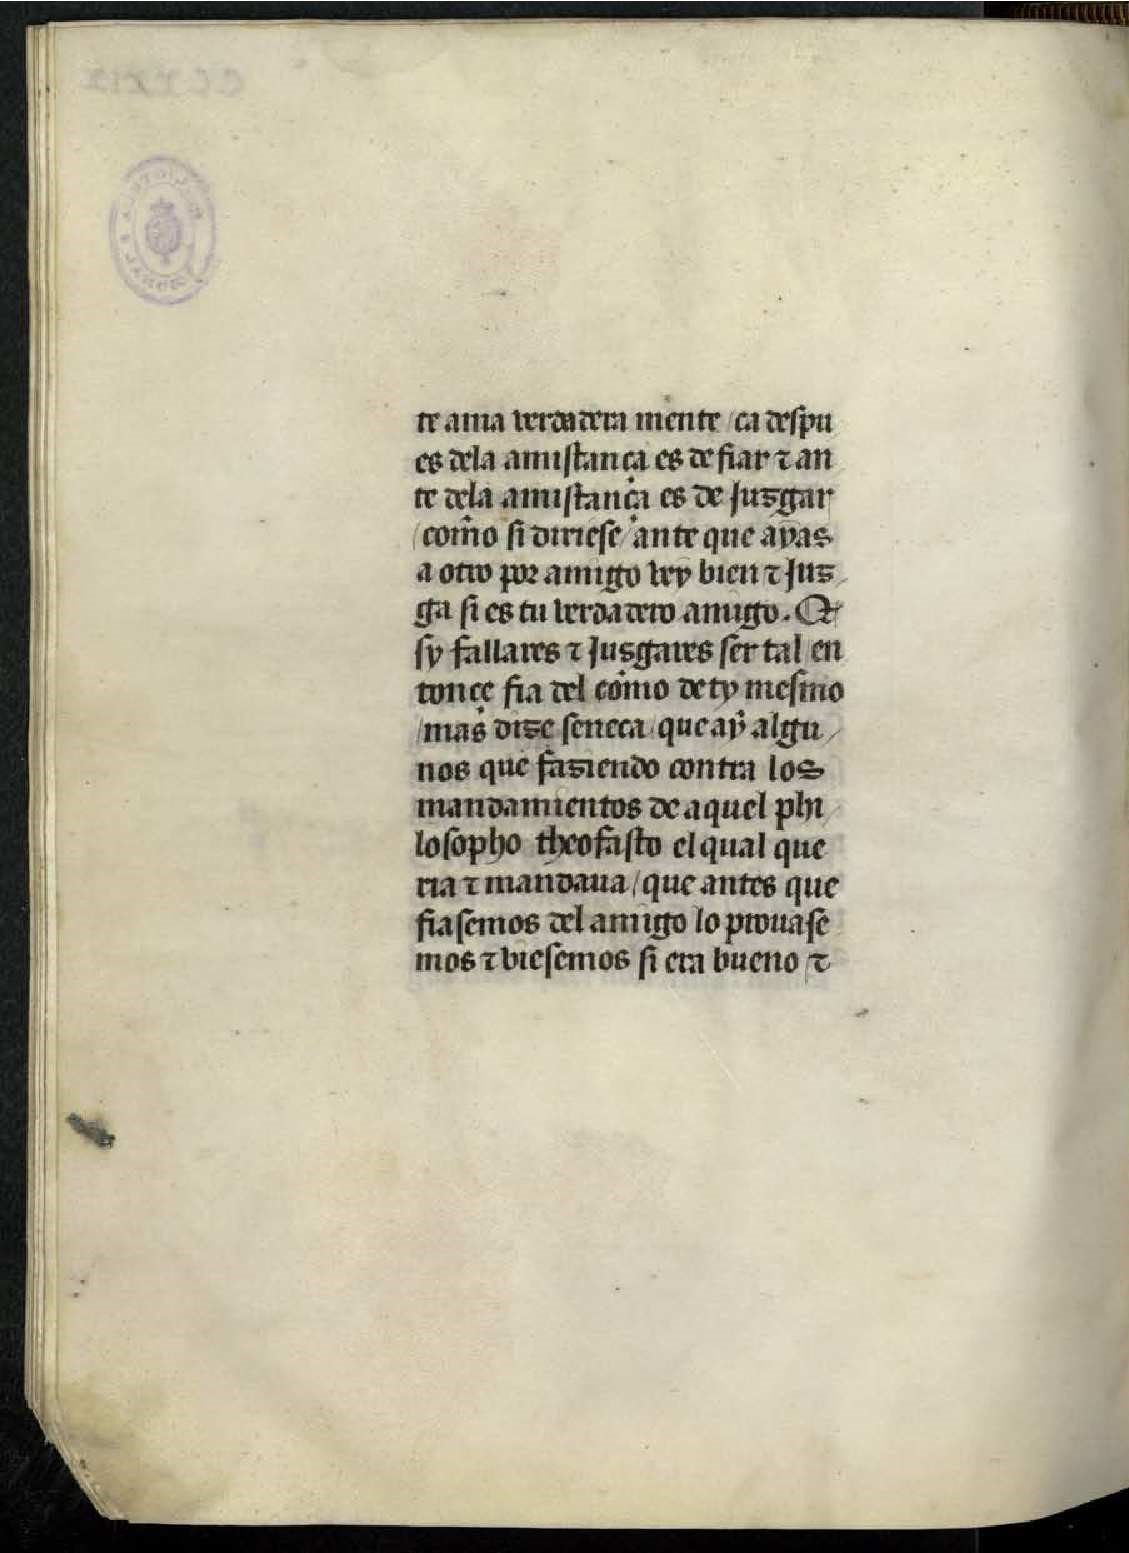 te ama verdadera mente / ca despu
es dela amistança es de fiar τ an
te dela amistança es de Juzgar
/ como si dixiese / ante que ayas
a otro por amigo vey bien τ Juz
ga si es tu verdadero amigo. Et
sy fallares τ Juzgares ser tal en
tonçe fia del como de ty mesmo
/ mas dize seneca que ay algu /
nos que faziendo contra los
mandamientos de aquel phi /
losopho theofasto el qual que
ria τ mandaua / que antes que
fiasemos del amigo lo prouase
mos τ viesemos si era bueno τ